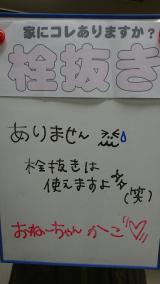 家にコレありますか？
栓抜き
ありません
栓抜きは
使えますよ
(笑)
おねーちゃん かーこ